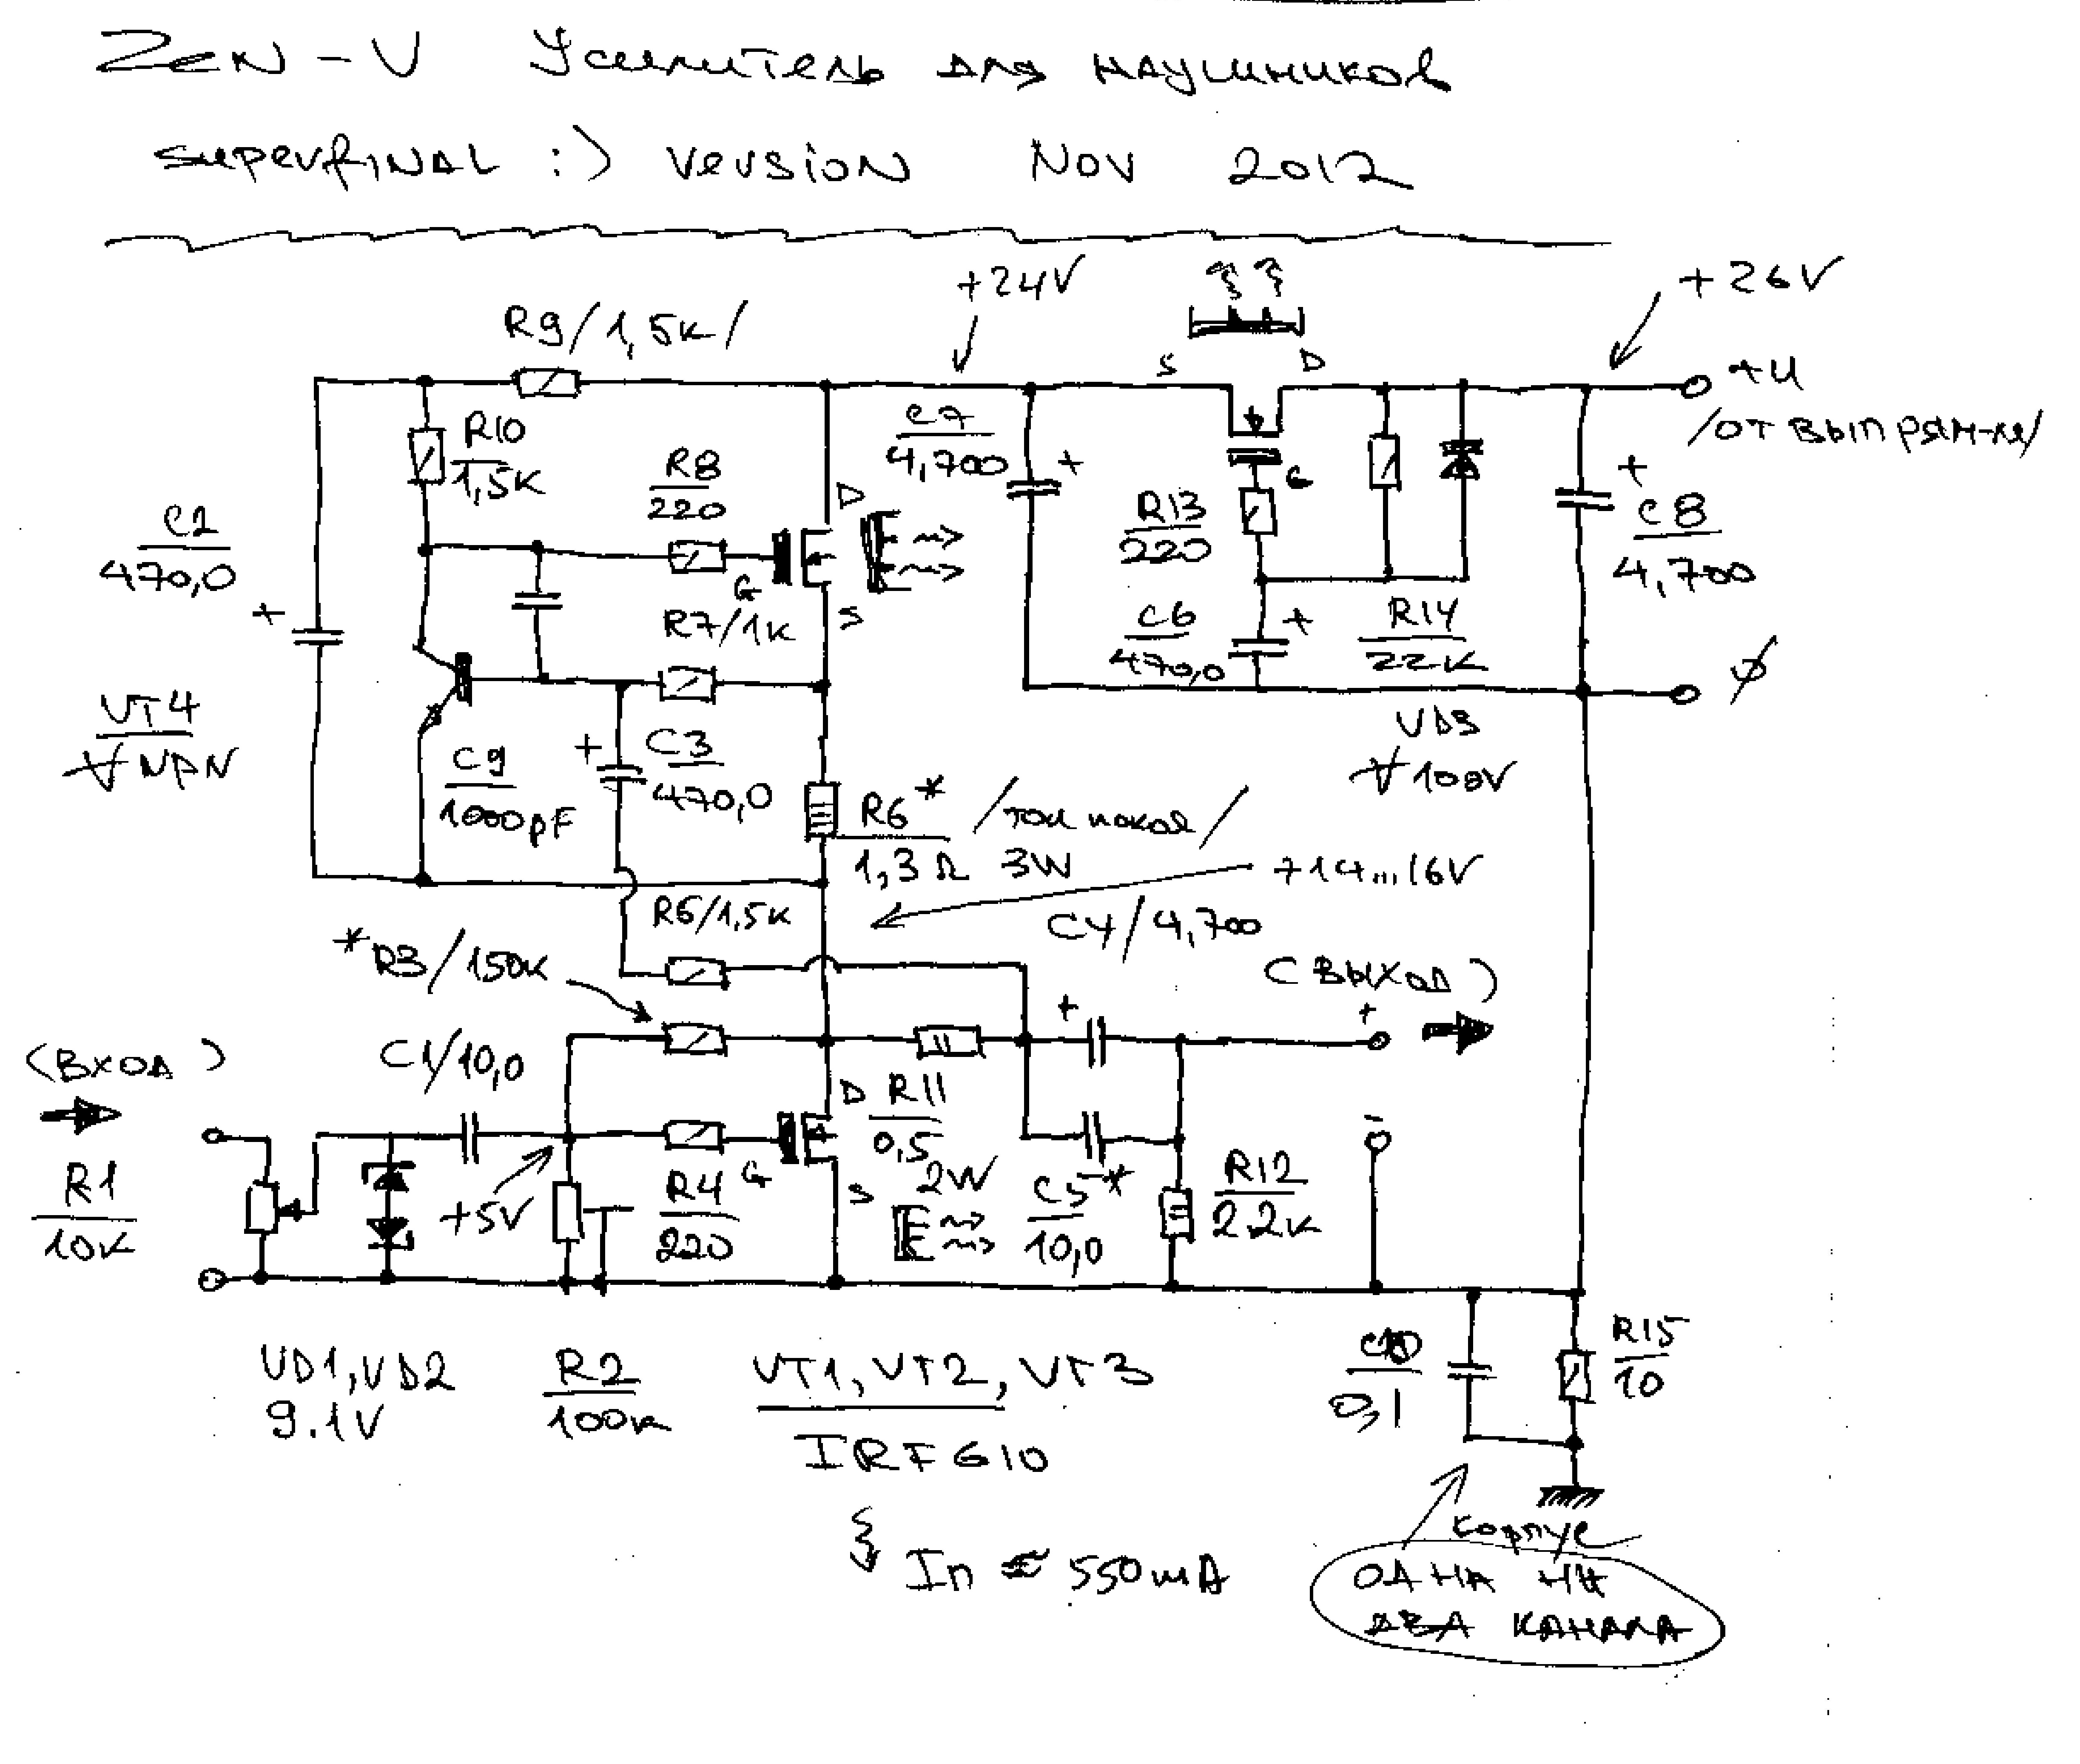 ZEN-V Усилитель для наушников
superfINAL :) version Nov 2012
+24V
+26V
R9/1,5к/
S
D
+U
/от выпрям-ля/
R10
1,5к
C7
4,700
+
R8
220
D
G
+
C2
470,0
R13
220
C8
4,700
+
G
S
R7/1к
C6
470,0
+
R14
22к
ø
VT4
∀ NPN
VD3
∀ 100V
C9
1000pF
+
C3
470,0
R6*
1,3Ω 3W
/ток покоя/
+14...16V
R5/1,5к
C4/4,700
*R3/150к
(выход)
+
+
(вход)
C1/10,0
D
R11
0,5
2W
-
R1
10к
+5V
G
R4
220
S
C5*
10,0
R12
2.2к
VD1,VD2
9.1V
R2
100к
VT1, VT2, VT3
IRF610
C10
0,1
R15
10
Iп ≈ 550mA
корпус
одна на
два канала